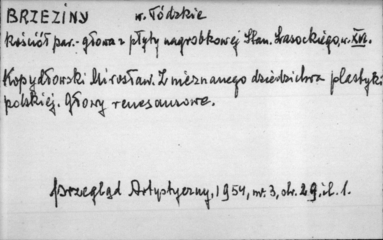 BRZEZINY w. Łódzkie
kościół par.- głowa z płyty nagrobkowej Stan. Lasockiego, w. XVI.
Kopydłowski Mirosław. Z nieznanego dziedzictwa plastyki
polskiej. Głowy renesansowe.
Przegląd Artystyczny, 1954, nr. 3, str. 29, il. 1.